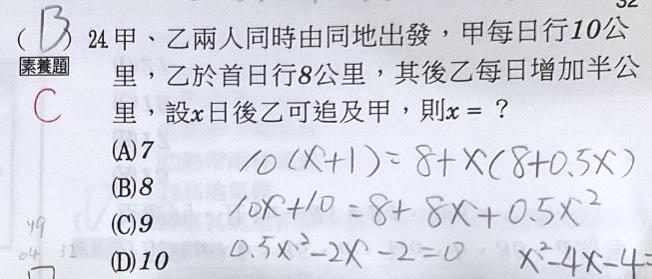 32
( B ) 24. 甲、乙兩人同時由同地出發，甲每日行10公
素養題
里，乙於首日行8公里，其後乙每日增加半公
C
里，設x日後乙可追及甲，則x = ？
(A) 7
10(x+1)=8+x(8+0.5x)
(B) 8
10x+10=8+8x+0.5x²
(C) 9
49
(D) 10
0.5x²-2x-2=0
x²-4x-4=
04
32